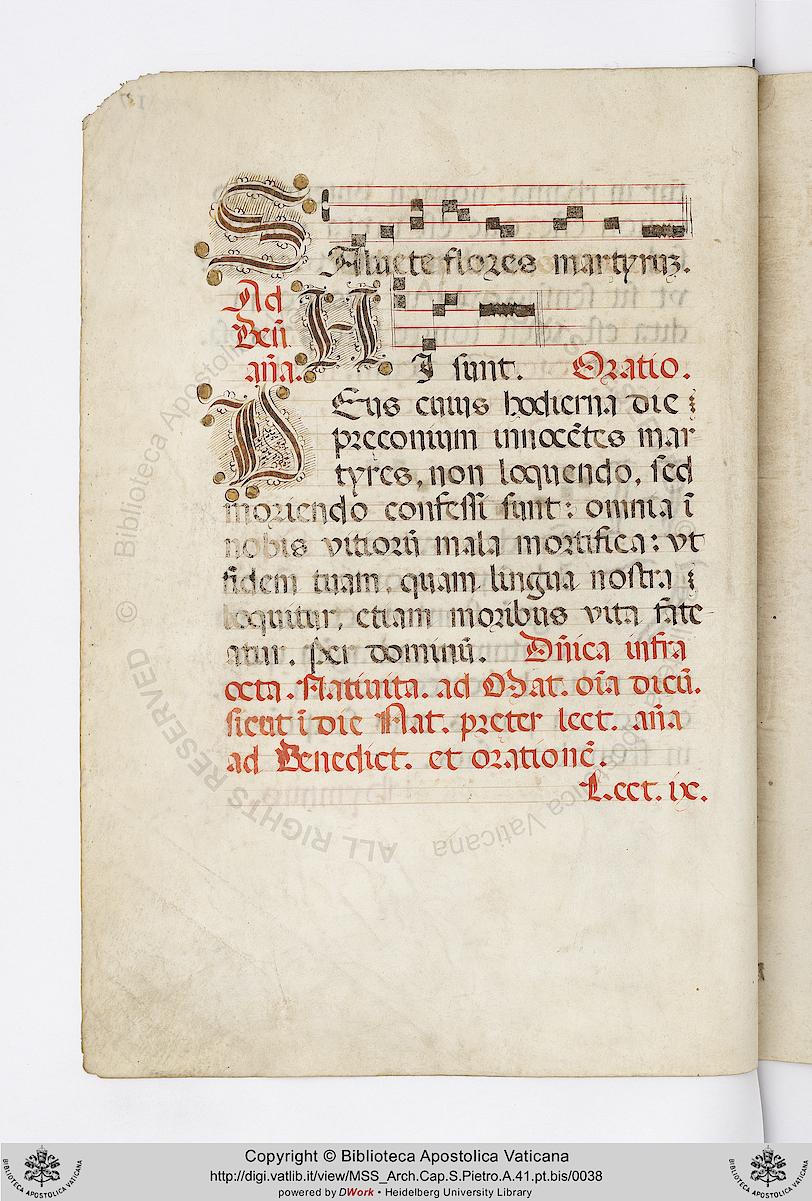 SAluete flores martyrūʒ.
Ad
Ben̄
an̄a. HI sunt. Oratio.
DEus cuius hodierna die
preconium innocētes mar
tyres, non loquendo, sed
moriendo confessi sunt: omnia ī
nobis vitiorū mala mortifica: vt
fidem tuam, quam lingua nostra
loquitur, etiam moribus vita fate
atur. Per dominū. Dn̄ica infra
octa. Natiuita. ad Mat. oīa dicū.
sicut ī die Nat. preter lect. an̄a
ad Benedict. et orationē.
Lect. ix.
© Biblioteca Apostolica Vaticana
ALL RIGHTS RESERVED
Copyright © Biblioteca Apostolica Vaticana
http://digi.vatlib.it/view/MSS_Arch.Cap.S.Pietro.A.41.pt.bis/0038
powered by DWork • Heidelberg University Library
BIBLIOTECA APOSTOLICA VATICANA
BIBLIOTECA APOSTOLICA VATICANA